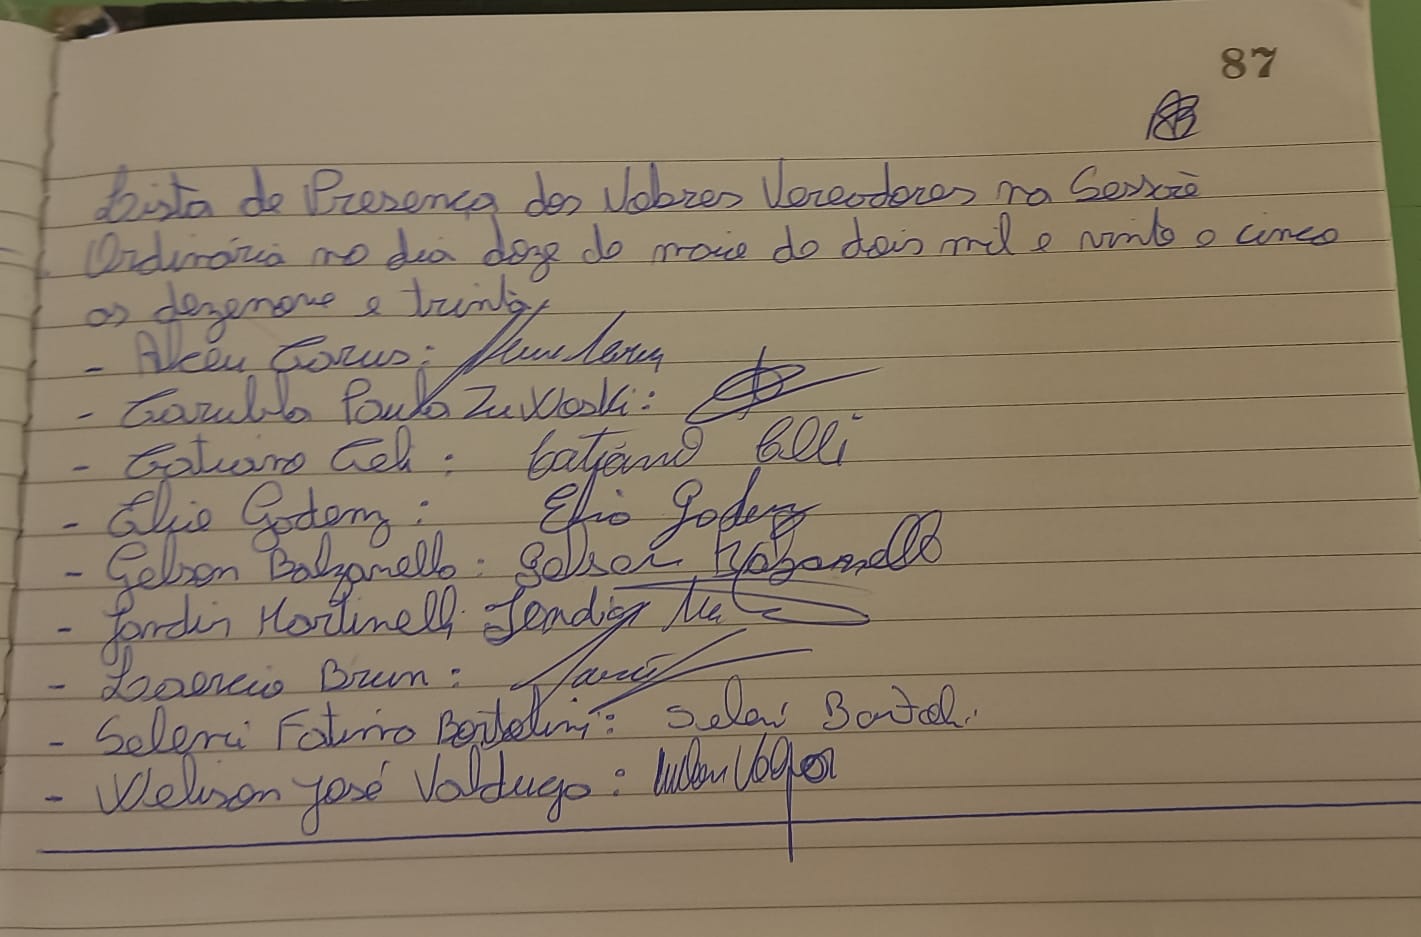 87
Lista de Presença dos Nobres Vereadores na Sessão
Ordinária no dia doze de maio de dois mil e vinte e cinco
as dezenove e trinta
- Alceu Carus:
- Paulo Zukloski:
- Catiano Celi: Catiano Celli
- Elio Godenz: Elio Godenz
- Gelson Balzanello: Gelson Balzanello
- Jandir Martinelli: Jandir
- Brun:
- Seleni Fatima Bortolini: Seleni Bortoli.
- Welison José Valduga: